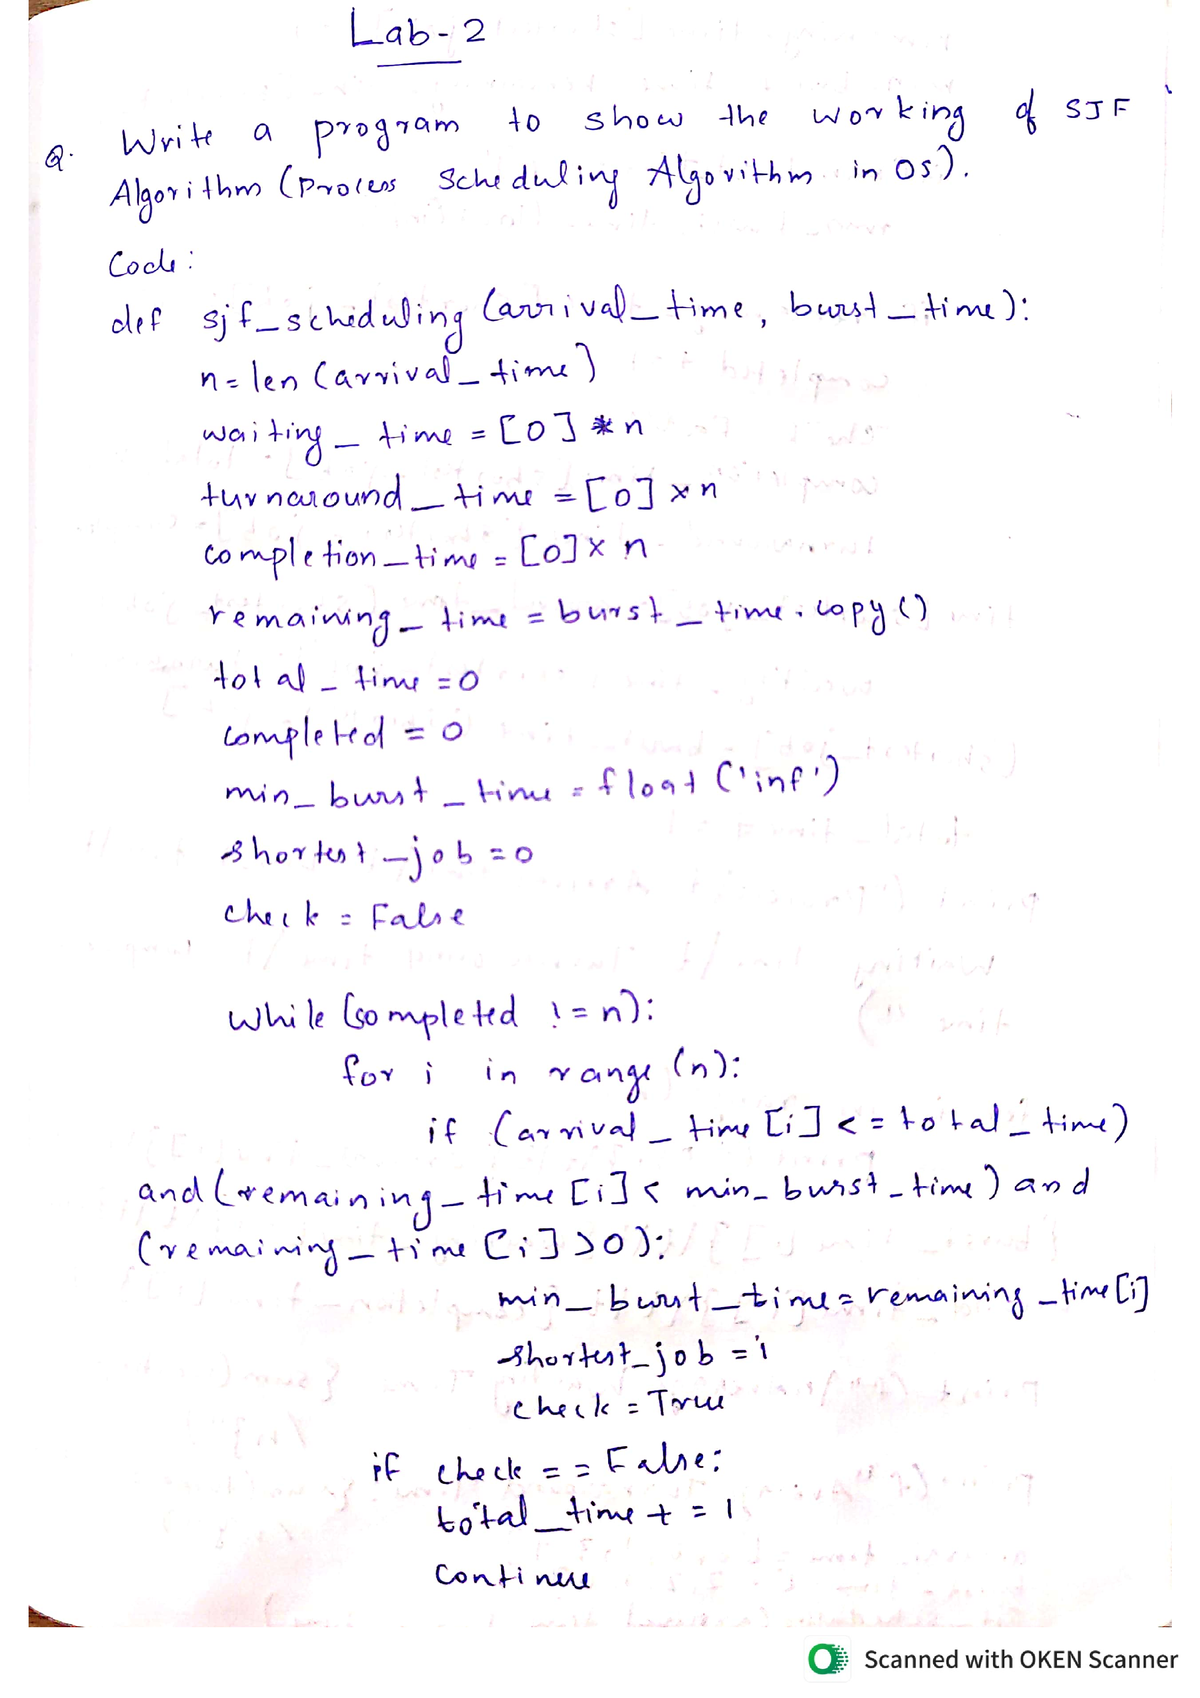 Lab-2
Q. Write a program to show the working of SJF
Algorithm (Process Scheduling Algorithm in OS).
Code:
def sjf_scheduling (arrival_time, burst_time):
n=len (arrival_time)
waiting_time = [0] * n
turnaround_time = [0] × n
completion_time = [0] × n
remaining_time = burst_time.copy()
total_time = 0
completed = 0
min_burst_time = float ('inf')
shortest_job = 0
check = False
while (completed != n):
for i in range (n):
if (arrival_time [i] <= total_time)
and (remaining_time [i] < min_burst_time) and
(remaining_time [i] > 0):
min_burst_time = remaining_time [i]
shortest_job = i
check = True
if check == False:
total_time += 1
continue
Scanned with OKEN Scanner